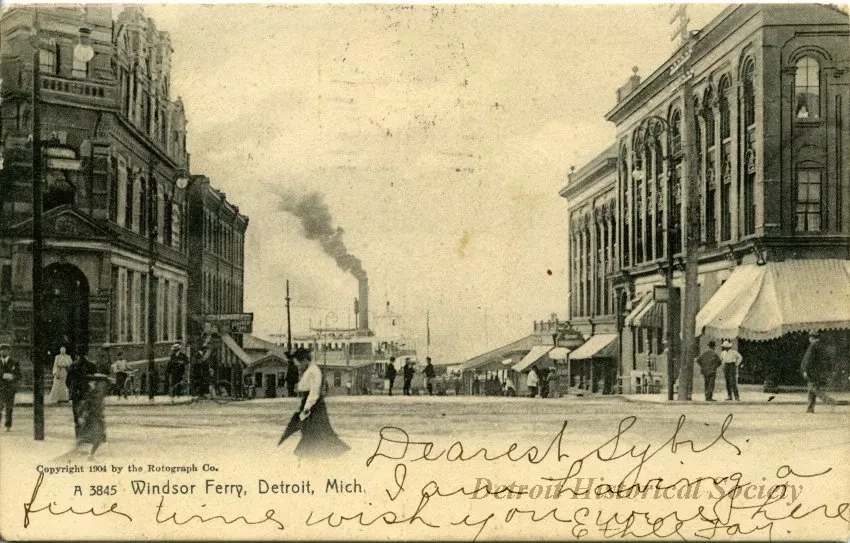 Copyright 1904 by the Rotograph Co.
A 3845 Windsor Ferry, Detroit, Mich.
Dearest Sybil.
I am having a
fine time wish you were here
Ethel Jay.
Detroit Historical Society